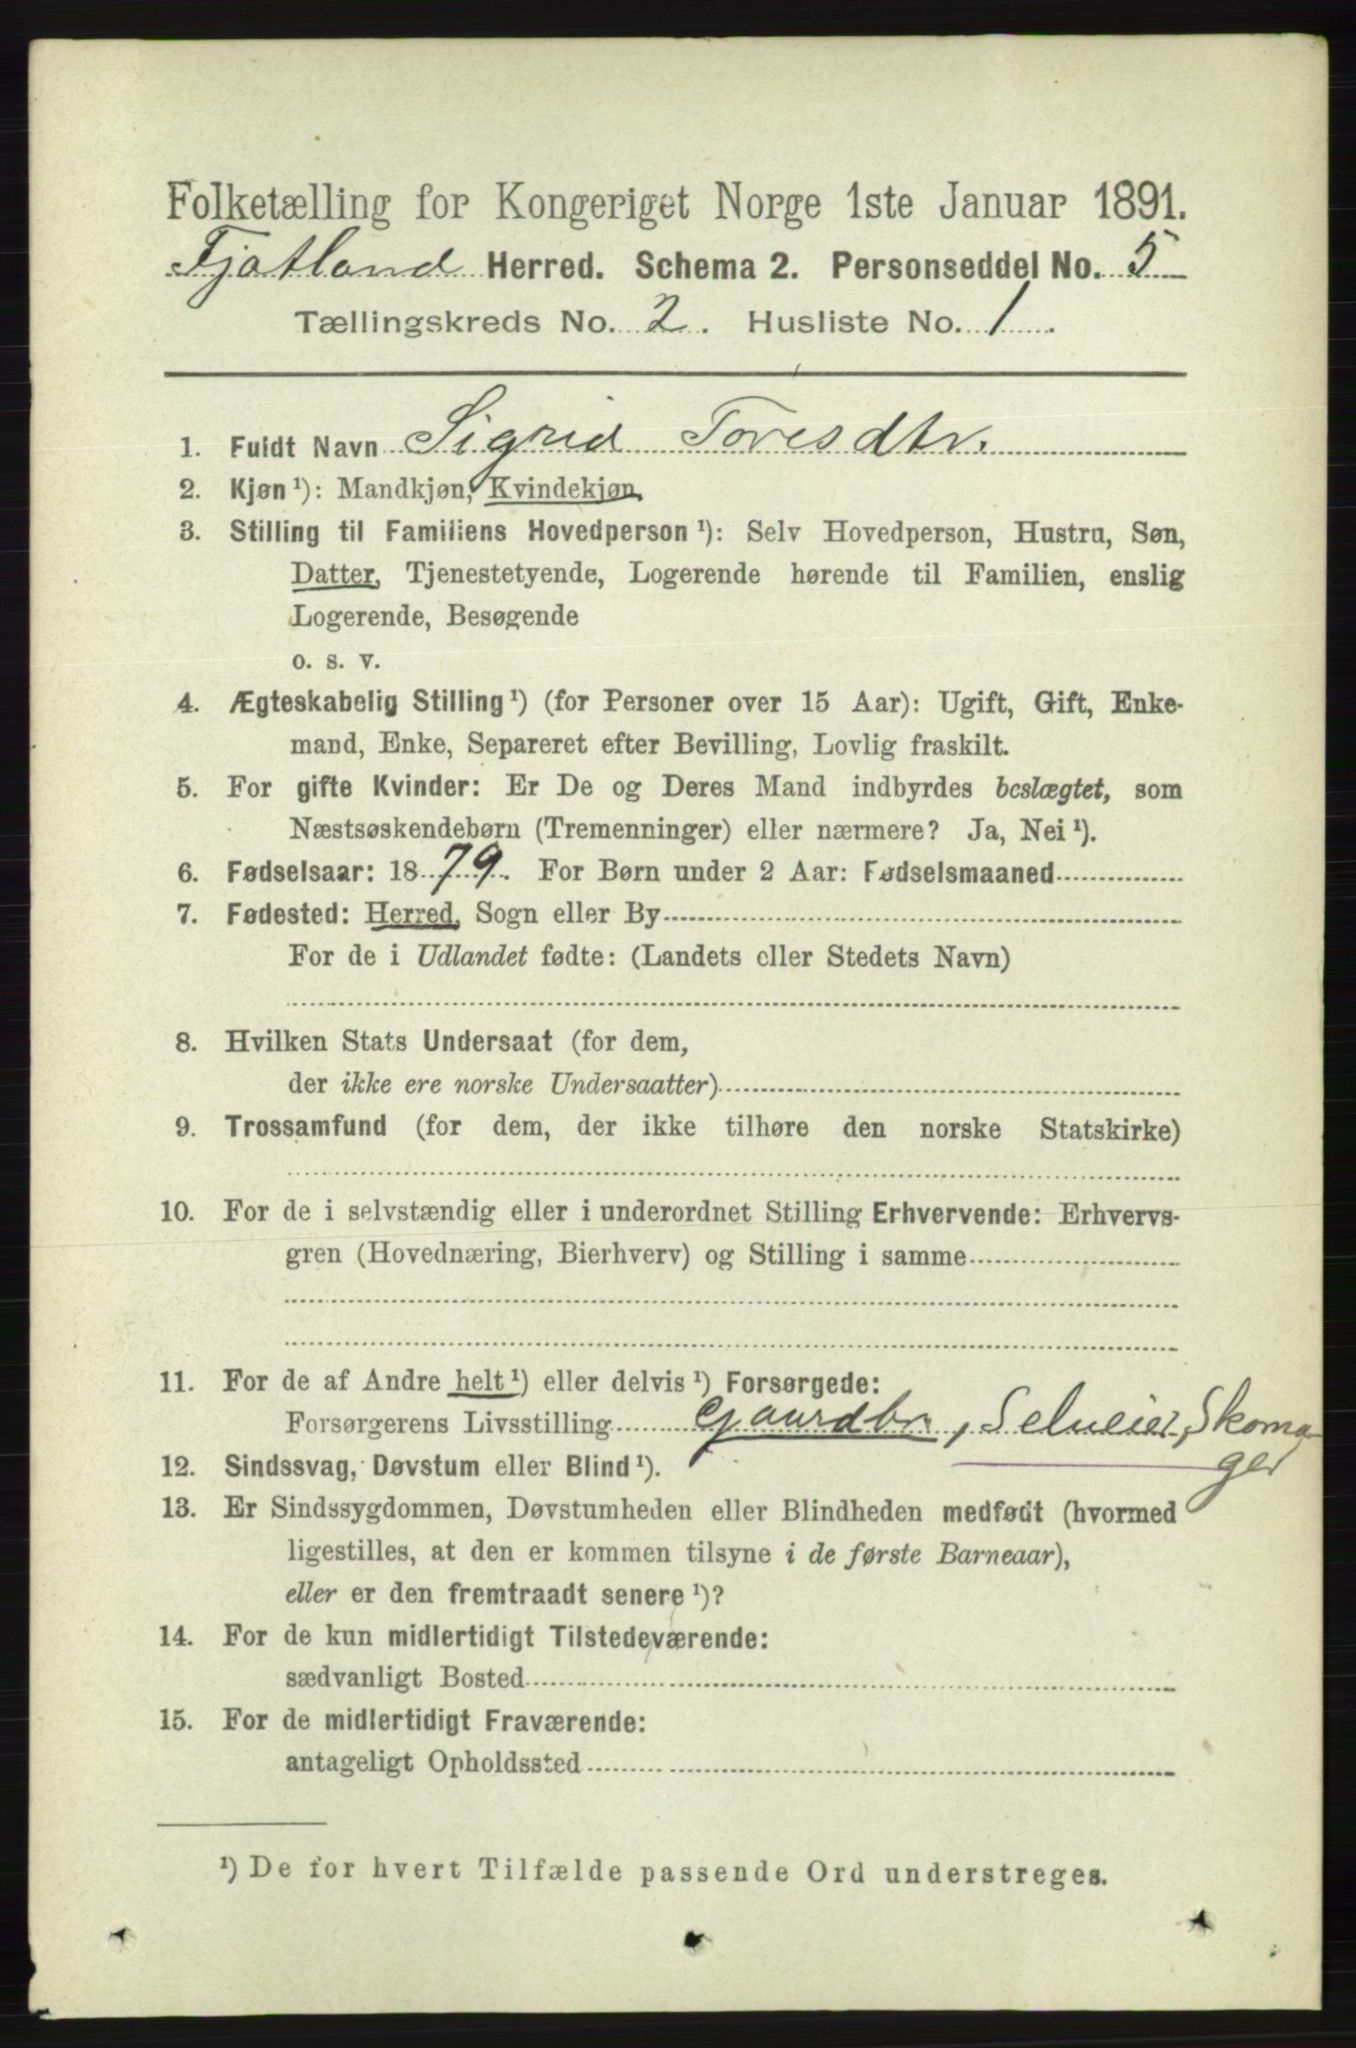 Folketælling for Kongeriget Norge 1ste Januar 1891.
Fjotland Herred. Schema 2. Personseddel No. 5
Tællingskreds No. 2. Husliste No. 1.
1. Fuldt Navn Sigrid Toresdtr.
2. Kjøn ¹): Mandkjøn, Kvindekjøn.
3. Stilling til Familiens Hovedperson ¹): Selv Hovedperson, Hustru, Søn,
Datter, Tjenestetyende, Logerende hørende til Familien, enslig
Logerende, Besøgende
o. s. v.
4. Ægteskabelig Stilling ¹) (for Personer over 15 Aar): Ugift, Gift, Enke-
mand, Enke, Separeret efter Bevilling, Lovlig fraskilt.
5. For gifte Kvinder: Er De og Deres Mand indbyrdes beslægtet, som
Næstsøskendebørn (Tremenninger) eller nærmere? Ja, Nei ¹).
6. Fødselsaar: 1879. For Børn under 2 Aar: Fødselsmaaned
7. Fødested: Herred, Sogn eller By
For de i Udlandet fødte: (Landets eller Stedets Navn)
8. Hvilken Stats Undersaat (for dem,
der ikke ere norske Undersaatter)
9. Trossamfund (for dem, der ikke tilhøre den norske Statskirke)
10. For de i selvstændig eller i underordnet Stilling Erhvervende: Erhvervs-
gren (Hovednæring, Bierhverv) og Stilling i samme
11. For de af Andre helt ¹) eller delvis ¹) Forsørgede:
Forsørgerens Livsstilling Gaardbr, Selveier, Skoma
ger
12. Sindssvag, Døvstum eller Blind ¹).
13. Er Sindssygdommen, Døvstumheden eller Blindheden medfødt (hvormed
ligestilles, at den er kommen tilsyne i de første Barneaar),
eller er den fremtraadt senere ¹)?
14. For de kun midlertidigt Tilstedeværende:
sædvanligt Bosted
15. For de midlertidigt Fraværende:
antageligt Opholdssted
¹) De for hvert Tilfælde passende Ord understreges.